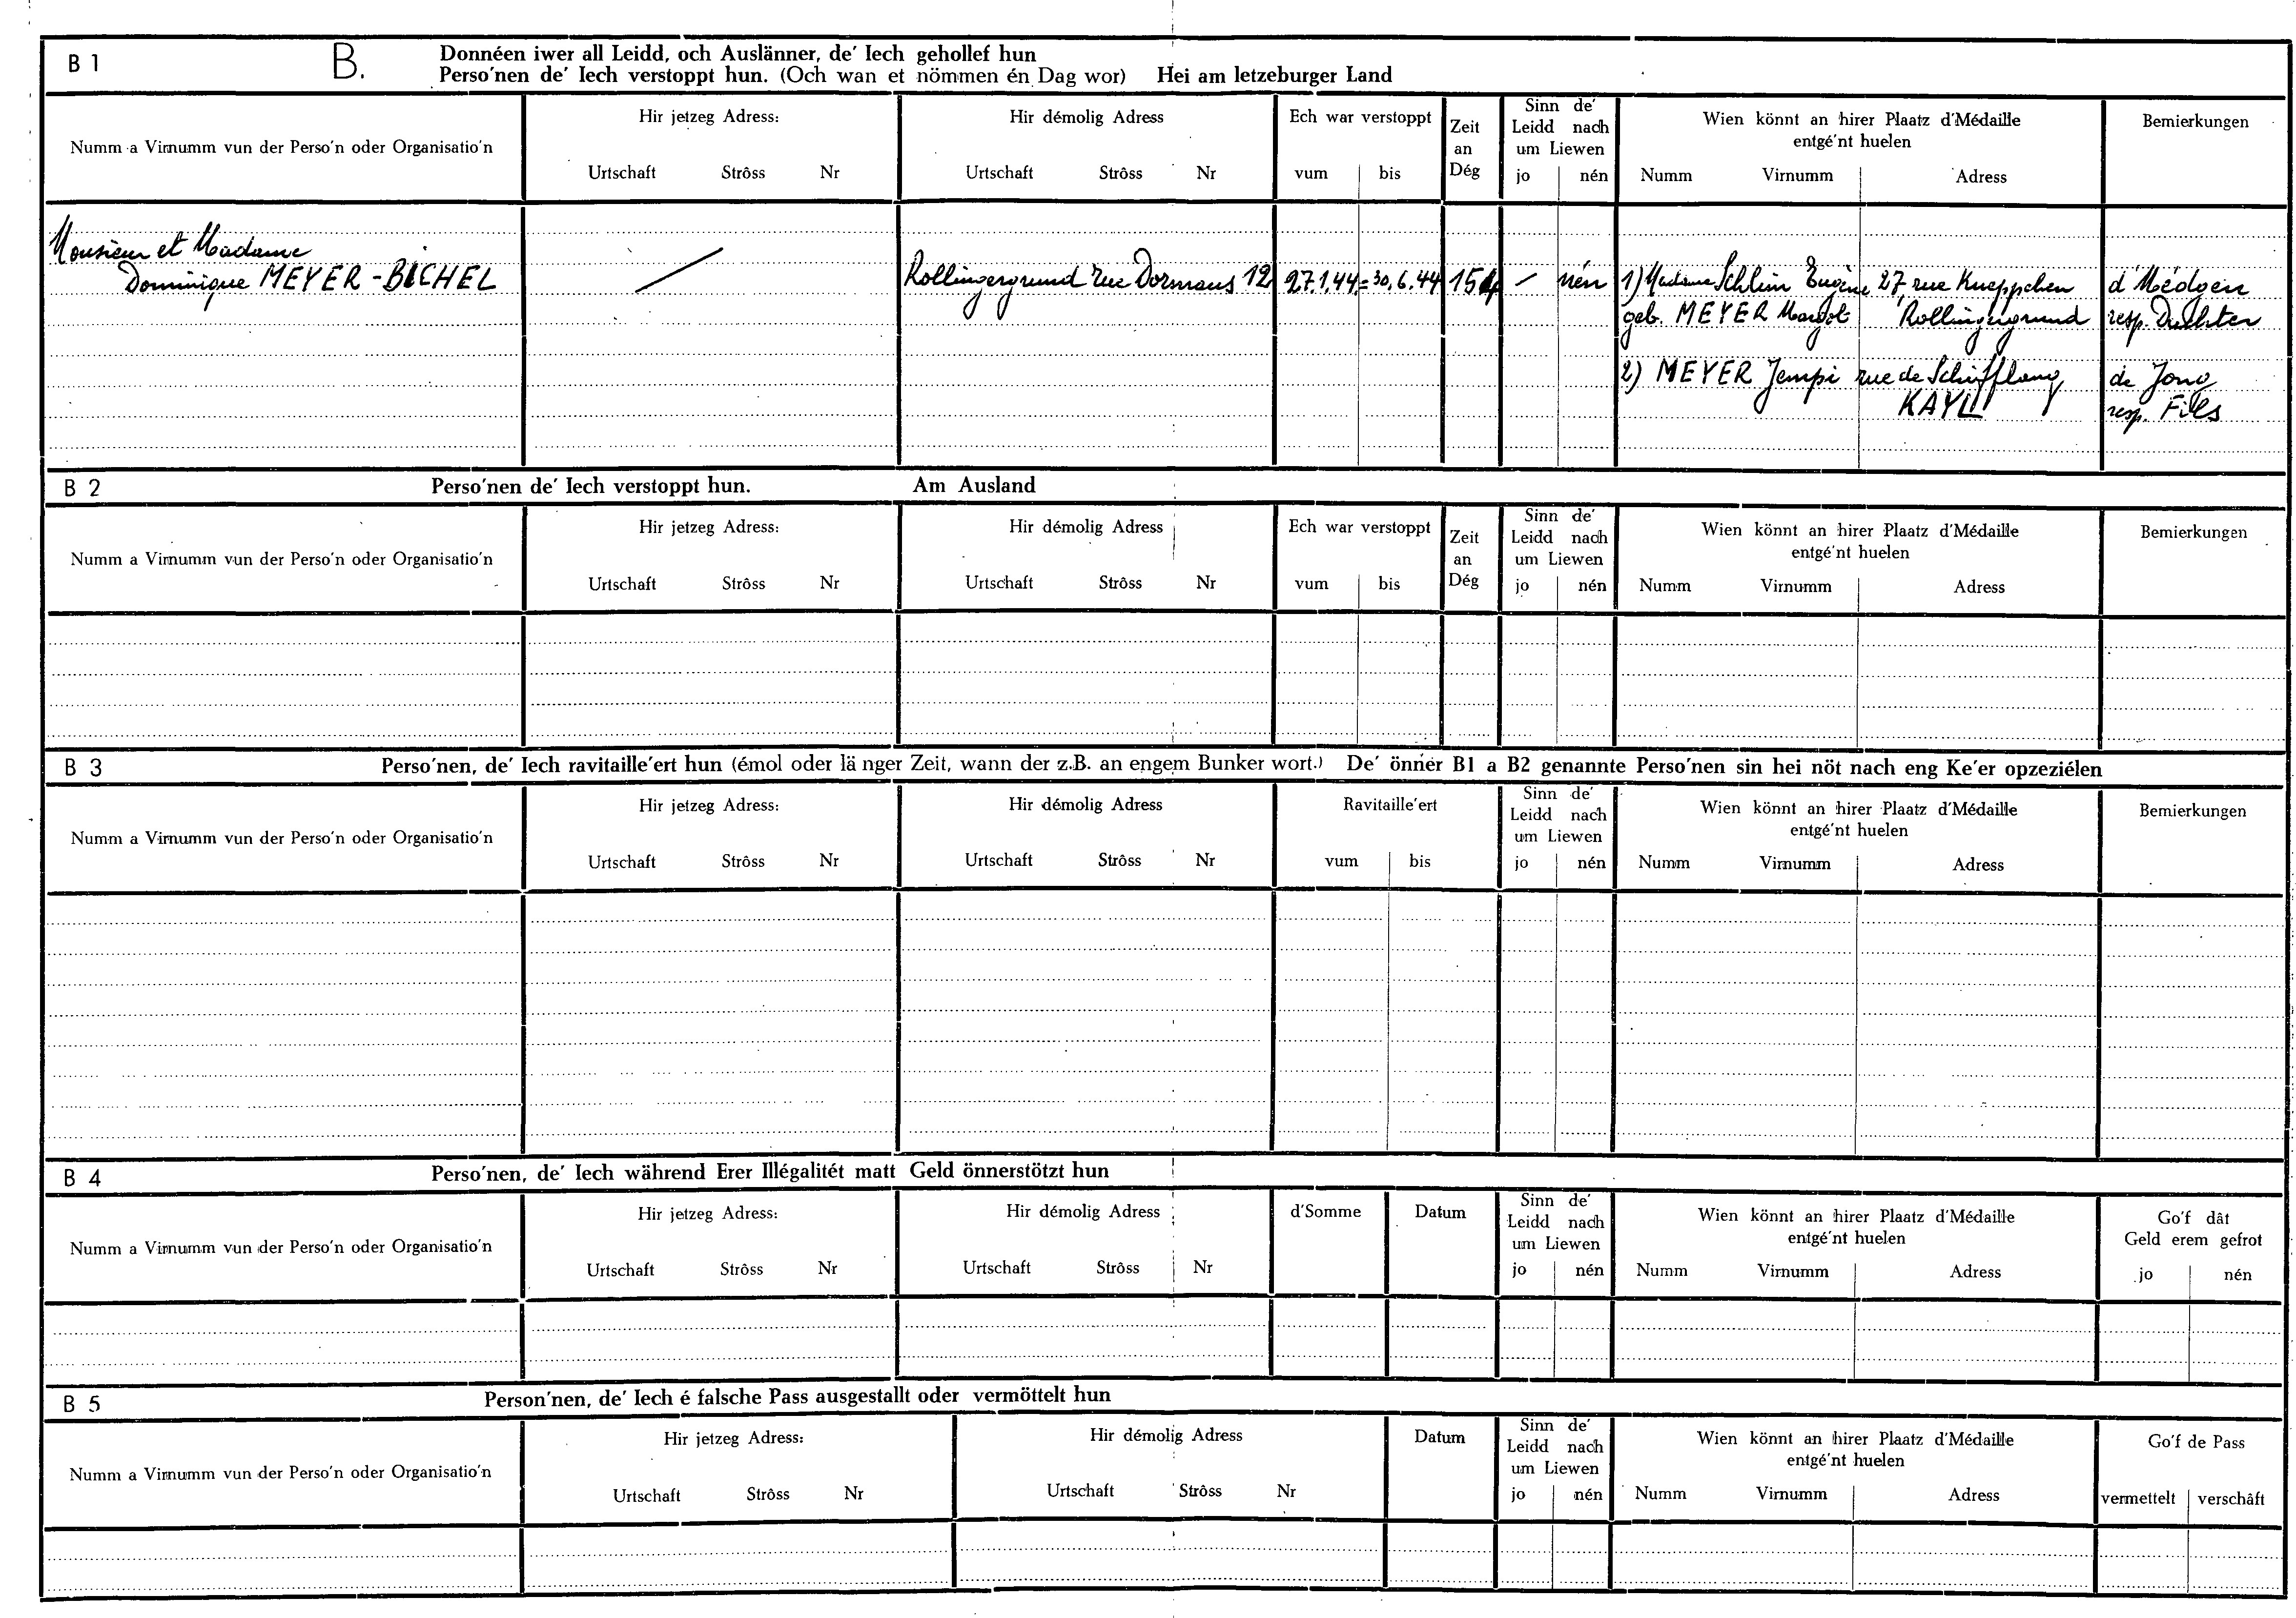 B 1 B. Donnéen iwer all Leidd, och Auslänner, de' Iech gehollef hun
Perso'nen de' Iech verstoppt hun. (Och wan et nömmen én Dag wor) Hei am letzeburger Land
Numm a Virnumm vun der Perso'n oder Organisatio'n
Hir jetzeg Adress:
Urtschaft Strôss Nr
Hir démolig Adress
Urtschaft Strôss Nr
Ech war verstoppt
vum bis
Zeit
an
Dég
Sinn de'
Leidd nach
um Liewen
jo nén
Wien könnt an hirer Plaatz d'Médaille
entgé'nt huelen
Numm Virnumm Adress
Bemierkungen
Monsieur et Madame
Dominique MEYER - BICHEL
Rollingergrund rue Dormans 12
27.1.44 = 30.6.44
154
— nén
1) Madame Schlim Eugène 27 rue Kneppchen
geb. MEYER Margot Rollingergrund
d'Médgen
resp. Duchter
2) MEYER Jempi rue de Schifflang
KAYL
de Jong
resp. Fils
B 2 Perso'nen de' Iech verstoppt hun. Am Ausland
Numm a Virnumm vun der Perso'n oder Organisatio'n
Hir jetzeg Adress:
Urtschaft Strôss Nr
Hir démolig Adress
Urtschaft Strôss Nr
Ech war verstoppt
vum bis
Zeit
an
Dég
Sinn de'
Leidd nach
um Liewen
jo nén
Wien könnt an hirer Plaatz d'Médaille
entgé'nt huelen
Numm Virnumm Adress
Bemierkungen
B 3 Perso'nen, de' Iech ravitaille'ert hun (émol oder länger Zeit, wann der z.B. an engem Bunker wort.) De' önner B1 a B2 genannte Perso'nen sin hei nöt nach eng Ke'er opzeziélen
Numm a Virnumm vun der Perso'n oder Organisatio'n
Hir jetzeg Adress:
Urtschaft Strôss Nr
Hir démolig Adress
Urtschaft Strôss Nr
Ravitaille'ert
vum bis
Sinn de'
Leidd nach
um Liewen
jo nén
Wien könnt an hirer Plaatz d'Médaille
entgé'nt huelen
Numm Virnumm Adress
Bemierkungen
B 4 Perso'nen, de' Iech während Erer Illégalitét matt Geld önnerstötzt hun
Numm a Virnumm vun der Perso'n oder Organisatio'n
Hir jetzeg Adress:
Urtschaft Strôss Nr
Hir démolig Adress
Urtschaft Strôss Nr
d'Somme
Datum
Sinn de'
Leidd nach
um Liewen
jo nén
Wien könnt an hirer Plaatz d'Médaille
entgé'nt huelen
Numm Virnumm Adress
Go'f dât
Geld erem gefrot
jo nén
B 5 Person'nen, de' Iech é falsche Pass ausgestallt oder vermöttelt hun
Numm a Virnumm vun der Perso'n oder Organisatio'n
Hir jetzeg Adress:
Urtschaft Strôss Nr
Hir démolig Adress
Urtschaft Strôss Nr
Datum
Sinn de'
Leidd nach
um Liewen
jo nén
Wien könnt an hirer Plaatz d'Médaille
entgé'nt huelen
Numm Virnumm Adress
Go'f de Pass
vermettelt verschâft